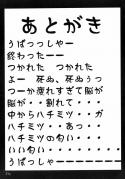 あとがき
うばっっしゃー
終わったーー
つかれた　つかれた
よー　死ぬ、死ぬぅっ
つーか疲れすぎて脳が
脳が‥割れて‥‥
中からハチミツ‥ガ
ハチミツ‥あっ‥‥
ハチミツの匂い‥‥
いい匂い‥‥‥‥‥
うばっしゃーーーーーーー